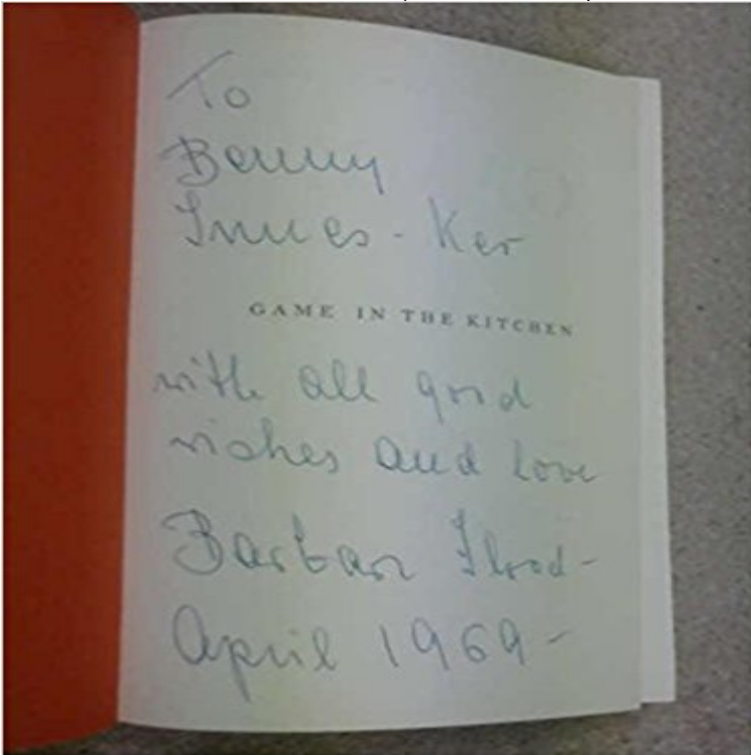 To
Benny
Innes - Ker
GAME IN THE KITCHEN
with all good
wishes and love
Barbara Flood -
April 1969 -